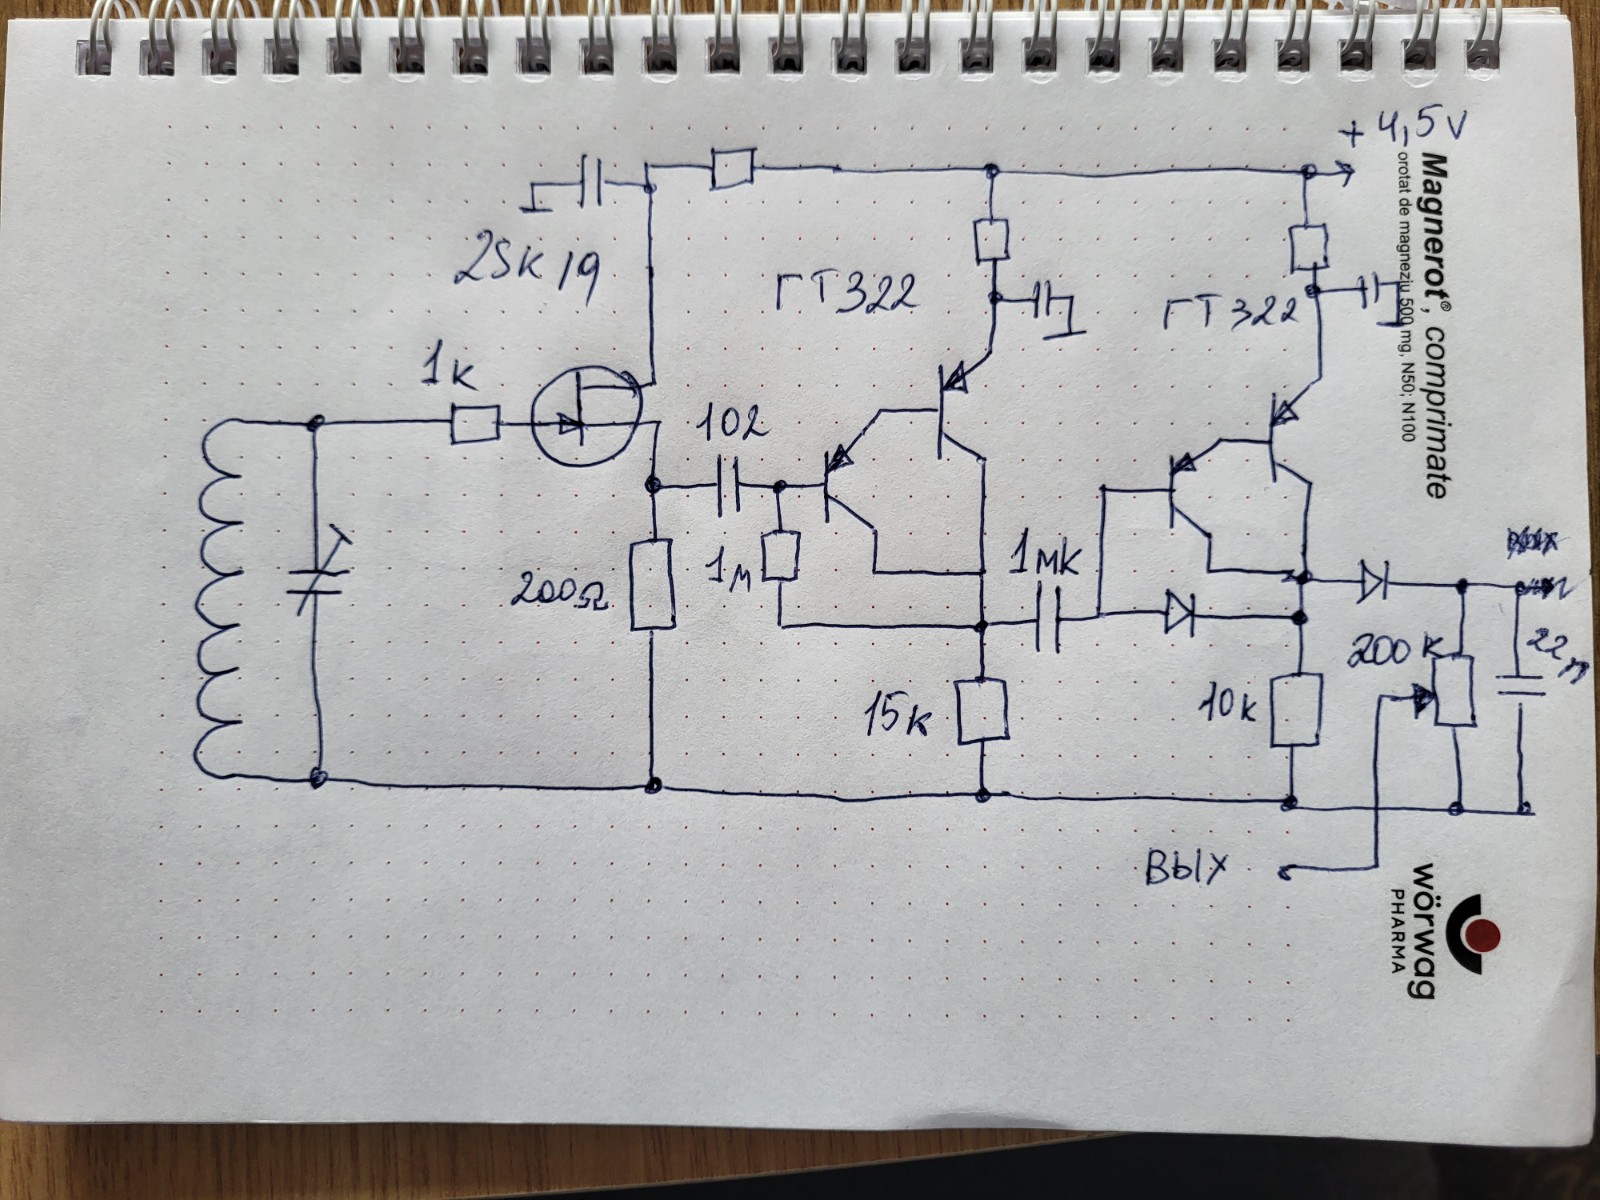 + 4,5V
2SK19
ГТ322
ГТ322
1к
102
200Ω
1м
1мк
15к
10к
200к
22
Вых
Magnerot®, comprimate
orotat de magneziu 500 mg, N50; N100
wörwag
PHARMA